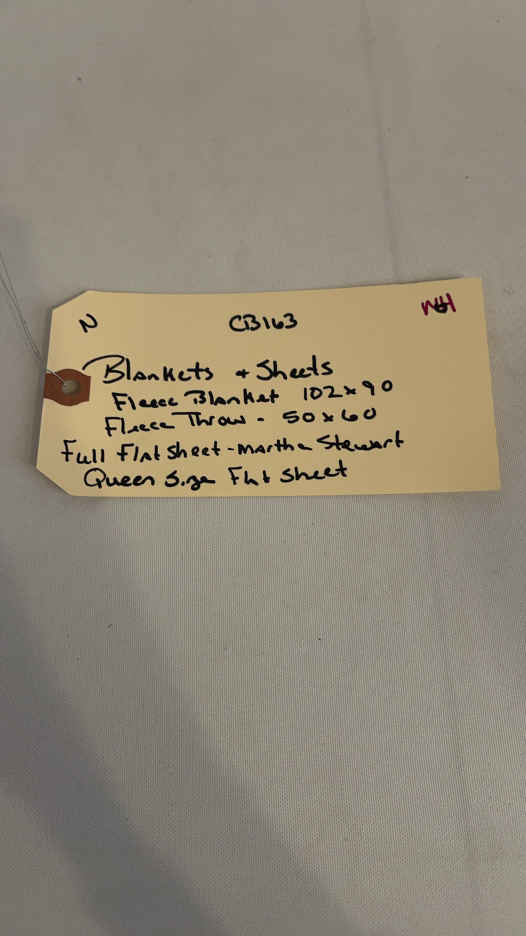 N CB163
Blankets + Sheets
Fleece Blanket 102x90
Fleece Throw - 50x60
Full Flat sheet - Martha Stewart
Queen Size Flat Sheet